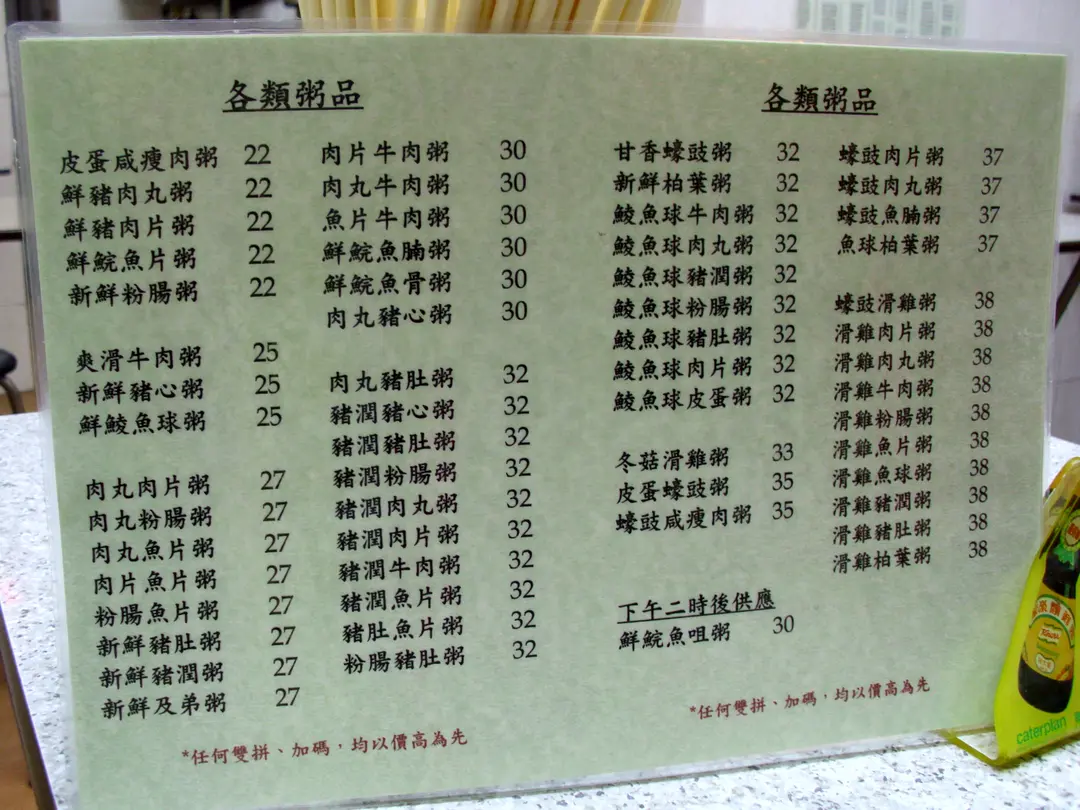 各類粥品
皮蛋咸瘦肉粥 22
鮮豬肉丸粥 22
鮮豬肉片粥 22
鮮鯇魚片粥 22
新鮮粉腸粥 22
爽滑牛肉粥 25
新鮮豬心粥 25
鮮鯪魚球粥 25
肉丸肉片粥 27
肉丸粉腸粥 27
肉丸魚片粥 27
肉片魚片粥 27
粉腸魚片粥 27
新鮮豬肚粥 27
新鮮豬潤粥 27
新鮮及弟粥 27
肉片牛肉粥 30
肉丸牛肉粥 30
魚片牛肉粥 30
鮮鯇魚腩粥 30
鮮鯇魚骨粥 30
肉丸豬心粥 30
肉丸豬肚粥 32
豬潤豬心粥 32
豬潤豬肚粥 32
豬潤粉腸粥 32
豬潤肉丸粥 32
豬潤肉片粥 32
豬潤牛肉粥 32
豬潤魚片粥 32
豬肚魚片粥 32
粉腸豬肚粥 32
*任何雙拼、加碼，均以價高為先
各類粥品
甘香蠔豉粥 32
新鮮柏葉粥 32
鯪魚球牛肉粥 32
鯪魚球肉丸粥 32
鯪魚球豬潤粥 32
鯪魚球粉腸粥 32
鯪魚球豬肚粥 32
鯪魚球肉片粥 32
鯪魚球皮蛋粥 32
冬菇滑雞粥 33
皮蛋蠔豉粥 35
蠔豉咸瘦肉粥 35
下午二時後供應
鮮鯇魚咀粥 30
蠔豉肉片粥 37
蠔豉肉丸粥 37
蠔豉魚腩粥 37
魚球柏葉粥 37
蠔豉滑雞粥 38
滑雞肉片粥 38
滑雞肉丸粥 38
滑雞牛肉粥 38
滑雞粉腸粥 38
滑雞魚片粥 38
滑雞魚球粥 38
滑雞豬潤粥 38
滑雞豬肚粥 38
滑雞柏葉粥 38
*任何雙拼、加碼，均以價高為先
Knorr
caterplan